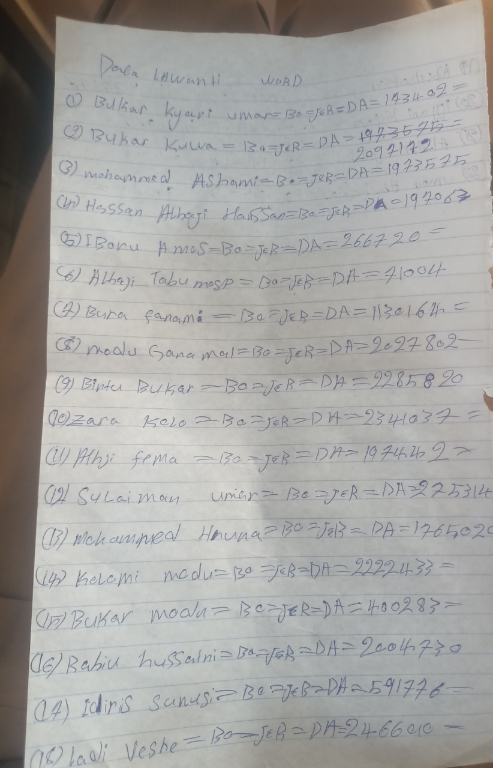 Dala Lawanti WARD
(1) Bukar Kyari umar=Bo=JER=DA=193402=
(2) Bukar Kuwa=Bo=JER=DA=1973575=
2097172
(3) mohammed Ashami=Bo=JER=DA=1973575
(4) Hassan Alhaji Hassan=Bo=JER=DA=197067
(5) IBoru Amos=Bo=JER=DA=266720=
(6) Alhaji Tabu mosp=Bo=JER=DA=71004
(7) Bura fanami=Bo=JER=DA=1130164=
(8) modu Gana mal=Bo=JER=DA=2027802=
(9) Bintu Bukar=Bo=JER=DA=2285820
(10) Zara Kolo=Bo=JER=DA=2341037=
(11) Alhji fema=Bo=JER=DA=1974492=
(12) Sulaiman umar=Bo=JER=DA=275314
(13) Mohammed Haruna=Bo=JER=DA=1765020
(14) Kolomi modu=Bo=JER=DA=2222433=
(15) Bukar modu=Bo=JER=DA=400283=
(16) Babiu hussaini=Bo=JER=DA=2004730
(17) Idiris sunusi=Bo=JER=DA=591776=
(18) ladi Veshe=Bo=JER=DA=2466010=